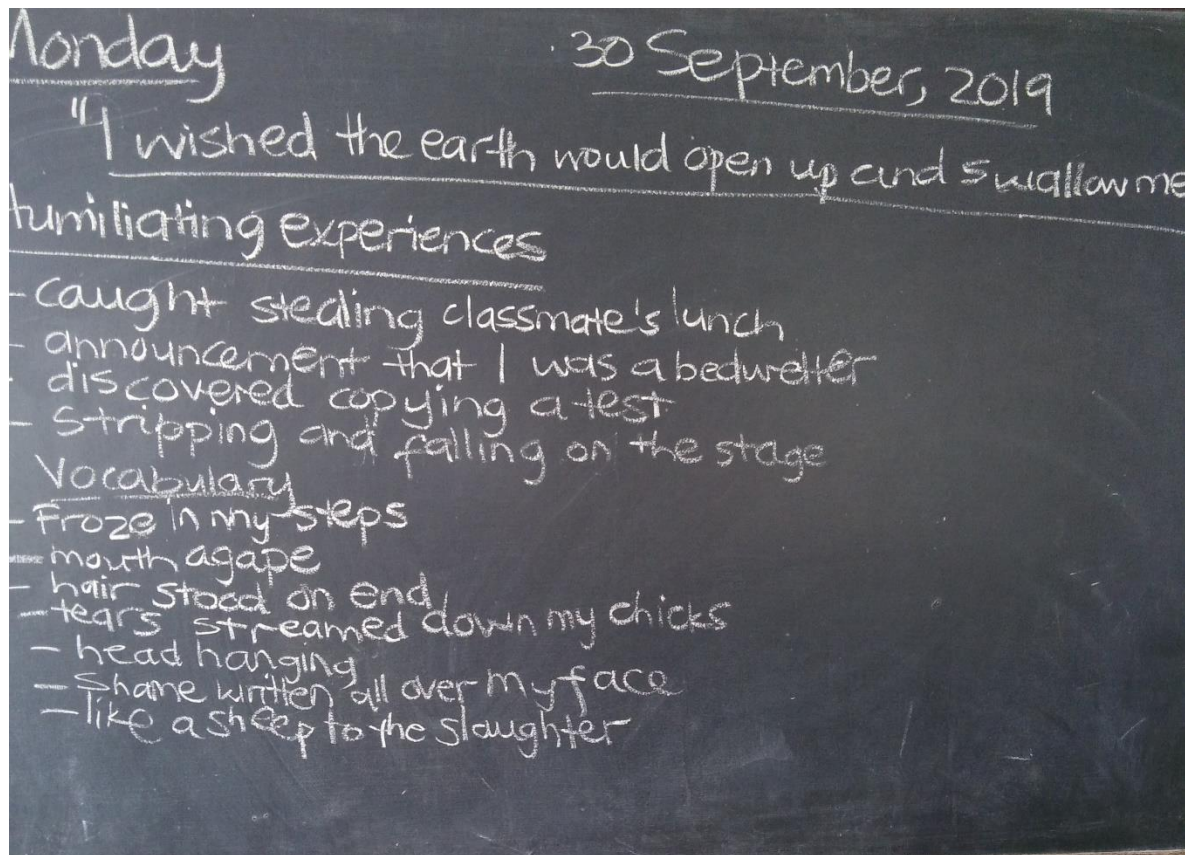 Monday 30 September, 2019
"I wished the earth would open up and swallow me
Humiliating experiences
- caught stealing classmate's lunch
- announcement that I was a bedwetter
- discovered copying a test
- stripping and falling on the stage
Vocabulary
- Froze in my steps
- mouth agape
- hair stood on end
- tears streamed down my chicks
- head hanging
- Shame written all over my face
- like a sheep to the slaughter